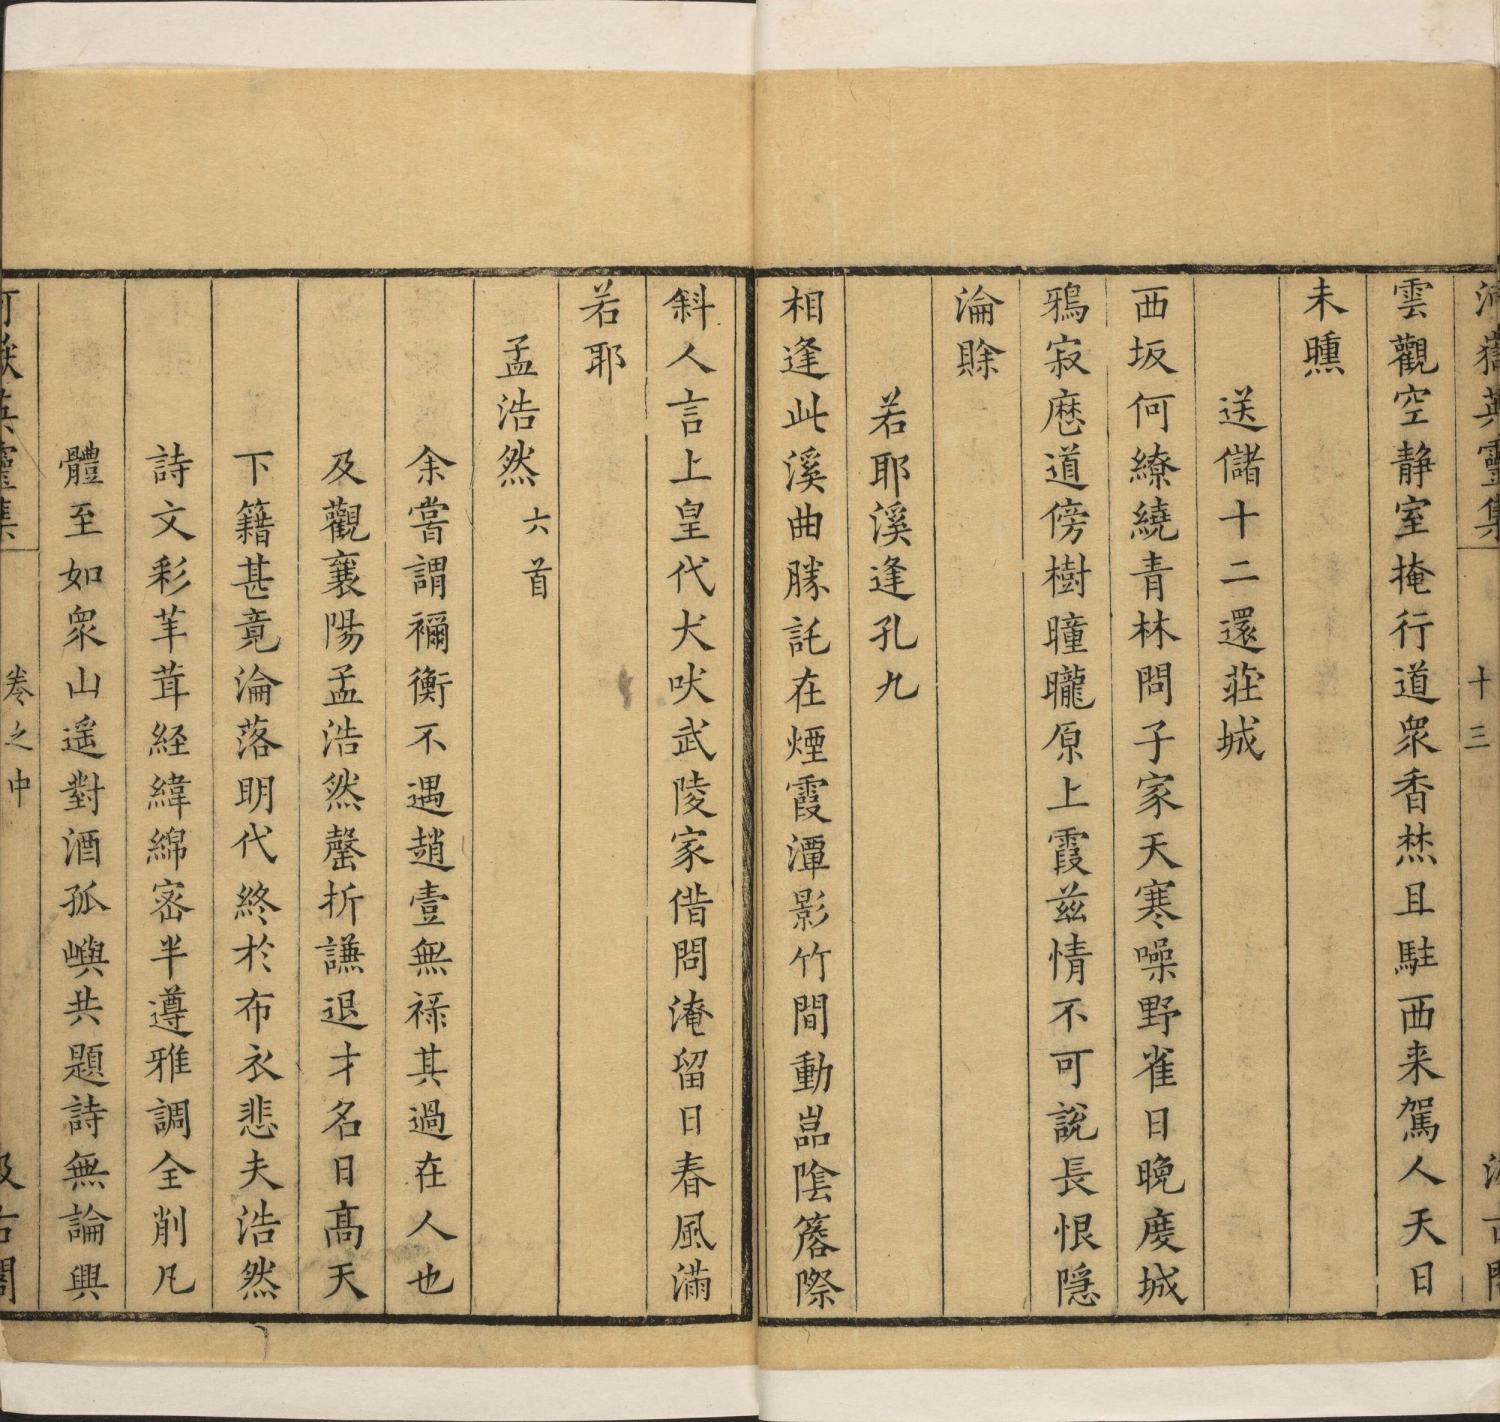 河嶽英靈集 十三 汲古閣
雲觀空静室掩行道衆香焚且駐西来駕人天日
未曛
送儲十二還莊城
西坂何繚繞青林問子家天寒噪野雀日晚度城
鴉寂歷道傍樹曈曨原上霞兹情不可說長恨隱
淪賒
若耶溪逢孔九
相逢此溪曲勝託在煙霞潭影竹間動嵓陰簷際
斜人言上皇代犬吠武陵家借問淹留日春風滿
若耶
孟浩然 六首
余嘗謂禰衡不遇趙壹無禄其過在人也
及觀襄陽孟浩然罄折謙退才名日高天
下籍甚竟淪落明代終於布衣悲夫浩然
詩文彩䒠茸経緯綿宻半遵雅調全削凡
體至如衆山遥對酒孤嶼共題詩無論興
河嶽英靈集 卷之中 汲古閣